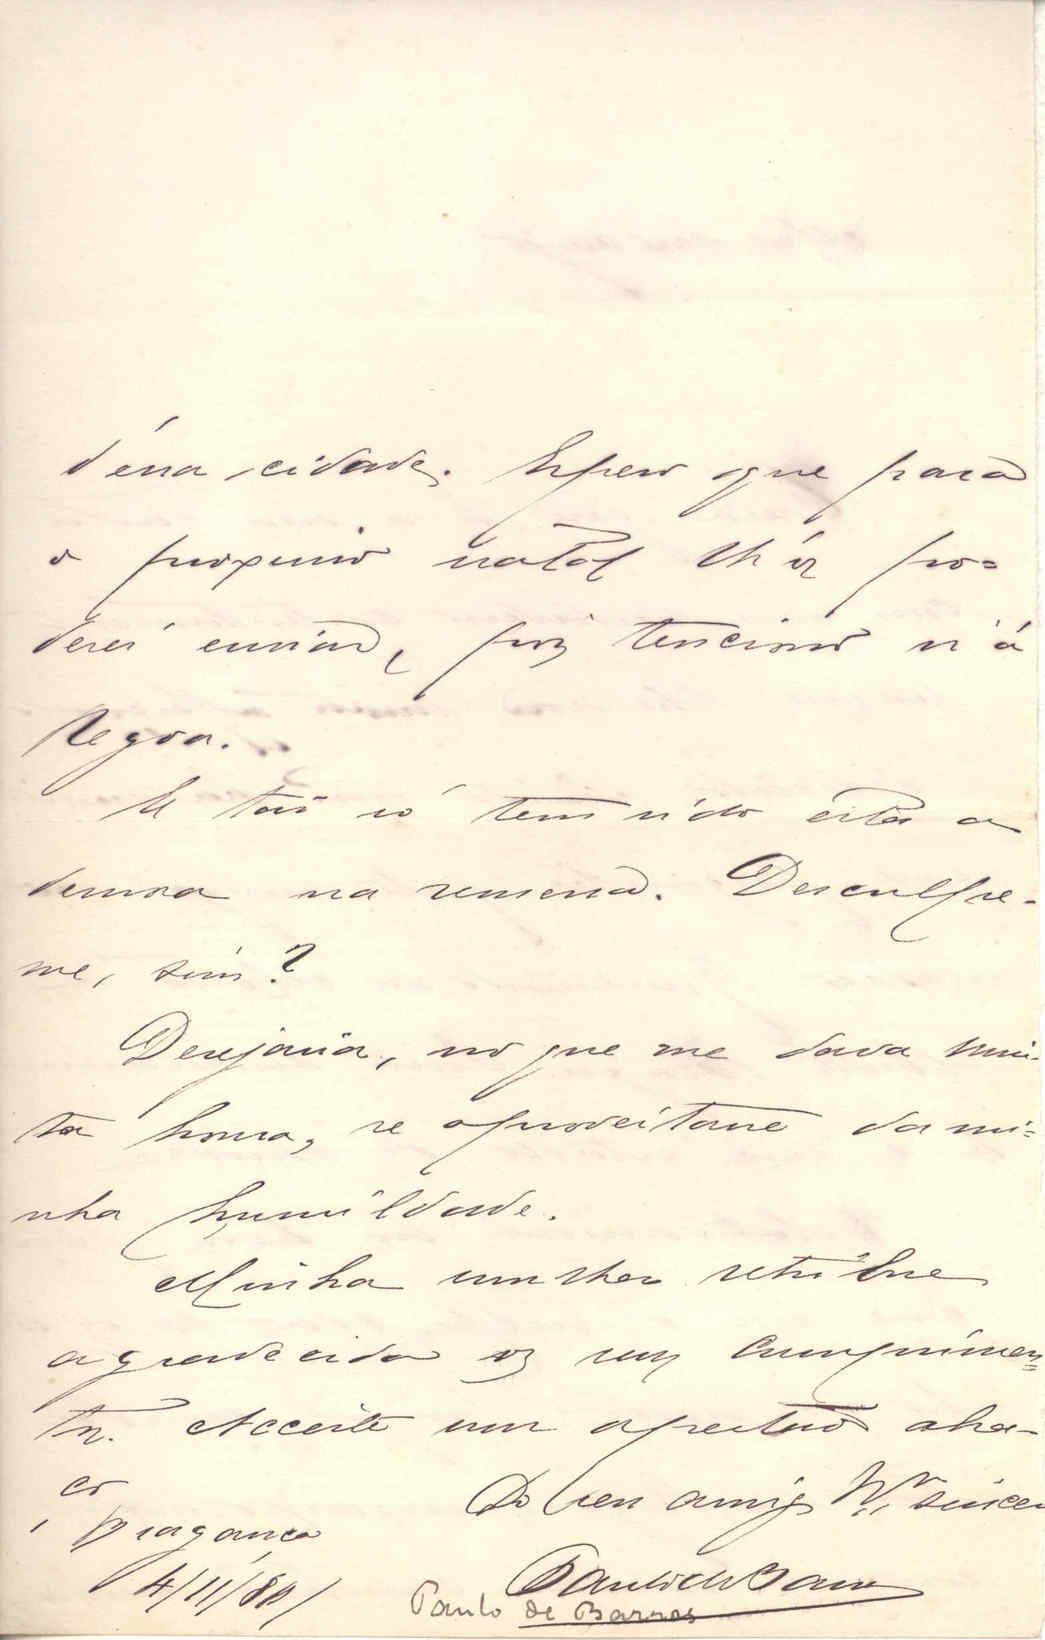 d'éssa cidade. Espero que para
o proximo natal lh'os po=
derei enviar, pois tenciono ir á
Regoa.
E tão só tem sido esta a
demora na remessa. Desculpe-
me, sim?
Desejaria, no que me dava mui-
ta honra, se aproveitasse da mi=
nha humildade.
Minha mulher retribue
agradecida os seus cumprimen=
tos. Acceite um apertado abra-
ço
Do seu amigo Mto sincero
Bragança
4/11/80/
Paulo de Barros
Paulo de Barros